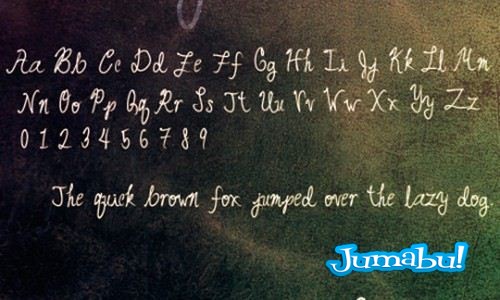 Aa Bb Cc Dd Ee Ff Gg Hh Ii Jj Kk Ll Mm
Nn Oo Pp Qq Rr Ss Tt Uu Vv Ww Xx Yy Zz
0 1 2 3 4 5 6 7 8 9
The quick brown fox jumped over the lazy dog.
Jumabu!